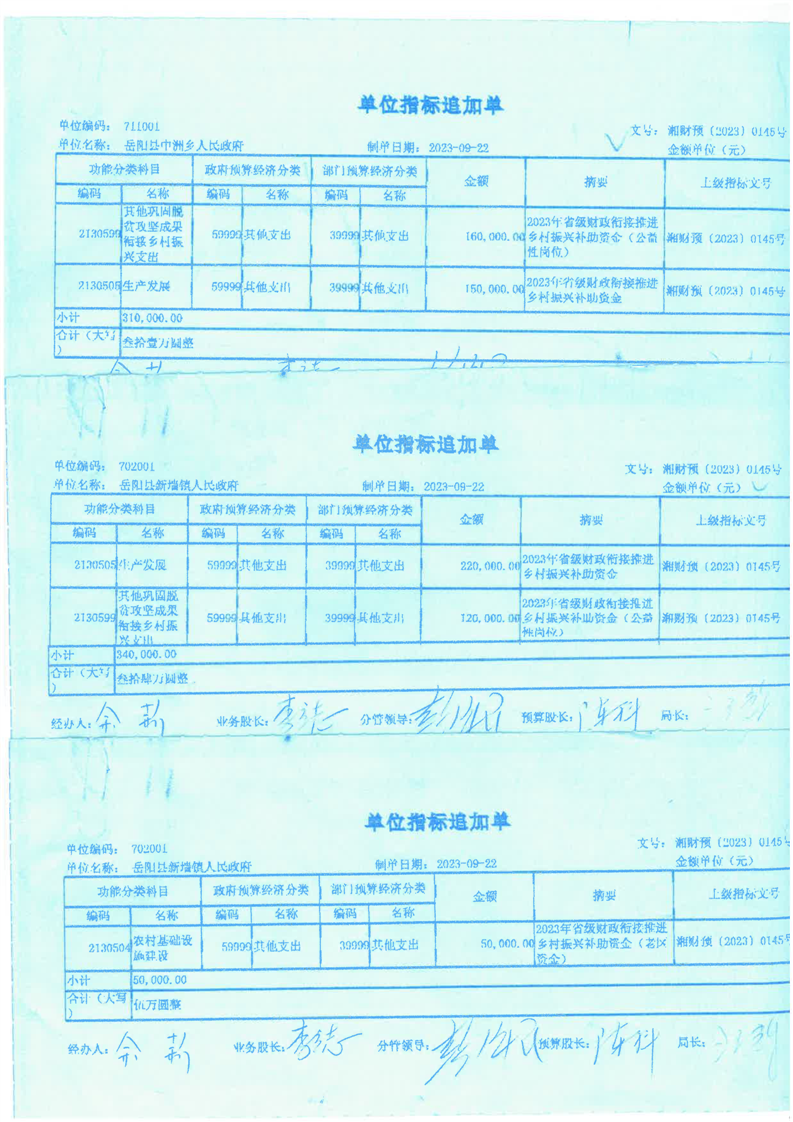 单位指标追加单
单位编码： 711001 文号： 湘财预〔2023〕0145号
单位名称： 岳阳县中洲乡人民政府 制单日期： 2023-09-22 金额单位（元）
功能分类科目 政府预算经济分类 部门预算经济分类 金额 摘要 上级指标文号
编码 名称 编码 名称 编码 名称
2130599 其他巩固脱贫攻坚成果衔接乡村振兴支出 59999 其他支出 39999 其他支出 160,000.00 2023年省级财政衔接推进乡村振兴补助资金（公益性岗位） 湘财预〔2023〕0145号
2130505 生产发展 59999 其他支出 39999 其他支出 150,000.00 2023年省级财政衔接推进乡村振兴补助资金 湘财预〔2023〕0145号
小计 310,000.00
合计（大写） 叁拾壹万圆整
单位指标追加单
单位编码： 702001 文号： 湘财预〔2023〕0145号
单位名称： 岳阳县新墙镇人民政府 制单日期： 2023-09-22 金额单位（元）
功能分类科目 政府预算经济分类 部门预算经济分类 金额 摘要 上级指标文号
编码 名称 编码 名称 编码 名称
2130505 生产发展 59999 其他支出 39999 其他支出 220,000.00 2023年省级财政衔接推进乡村振兴补助资金 湘财预〔2023〕0145号
2130599 其他巩固脱贫攻坚成果衔接乡村振兴支出 59999 其他支出 39999 其他支出 120,000.00 2023年省级财政衔接推进乡村振兴补助资金（公益性岗位） 湘财预〔2023〕0145号
小计 340,000.00
合计（大写） 叁拾肆万圆整
经办人： 业务股长： 分管领导： 预算股长： 局长：
单位指标追加单
单位编码： 702001 文号： 湘财预〔2023〕0145号
单位名称： 岳阳县新墙镇人民政府 制单日期： 2023-09-22 金额单位（元）
功能分类科目 政府预算经济分类 部门预算经济分类 金额 摘要 上级指标文号
编码 名称 编码 名称 编码 名称
2130504 农村基础设施建设 59999 其他支出 39999 其他支出 50,000.00 2023年省级财政衔接推进乡村振兴补助资金（老区资金） 湘财预〔2023〕0145号
小计 50,000.00
合计（大写） 伍万圆整
经办人： 业务股长： 分管领导： 预算股长： 局长：